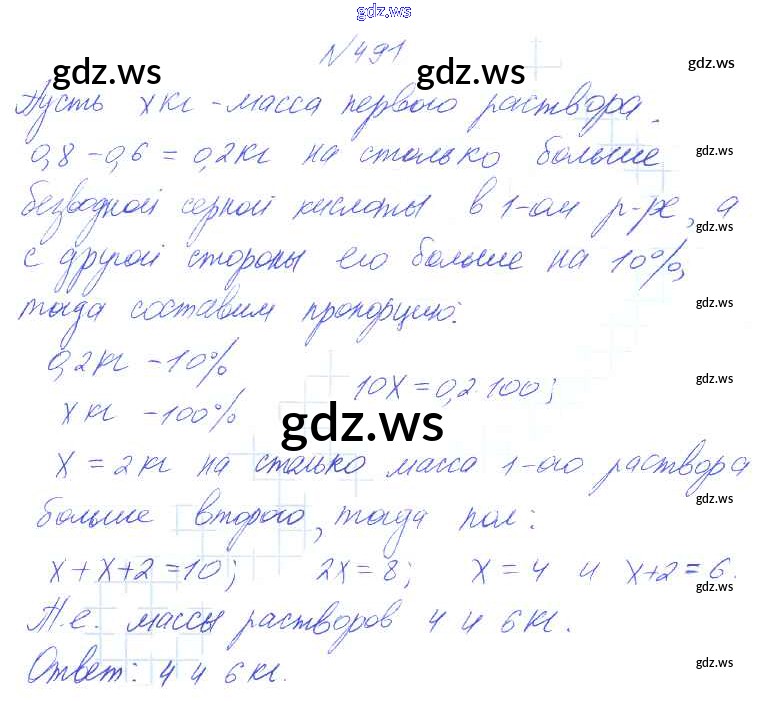 gdz.ws
N 491
gdz.ws gdz.ws
Пусть x кг - масса первого раствора.
0,8 - 0,6 = 0,2 кг на столько больше gdz.ws
безводной серной кислоты в 1-ом р-ре, а
gdz.ws
с другой стороны его больше на 10%,
тогда составим пропорцию: gdz.ws
0,2 кг - 10%
10x = 0,2·100; gdz.ws
x кг - 100%
gdz.ws
x = 2 кг на столько масса 1-ого раствора
gdz.ws
больше второго, тогда пол:
x + x + 2 = 10; 2x = 8; x = 4 и x + 2 = 6.
gdz.ws
Т.е. массы растворов 4 и 6 кг.
Ответ: 4 и 6 кг. gdz.ws